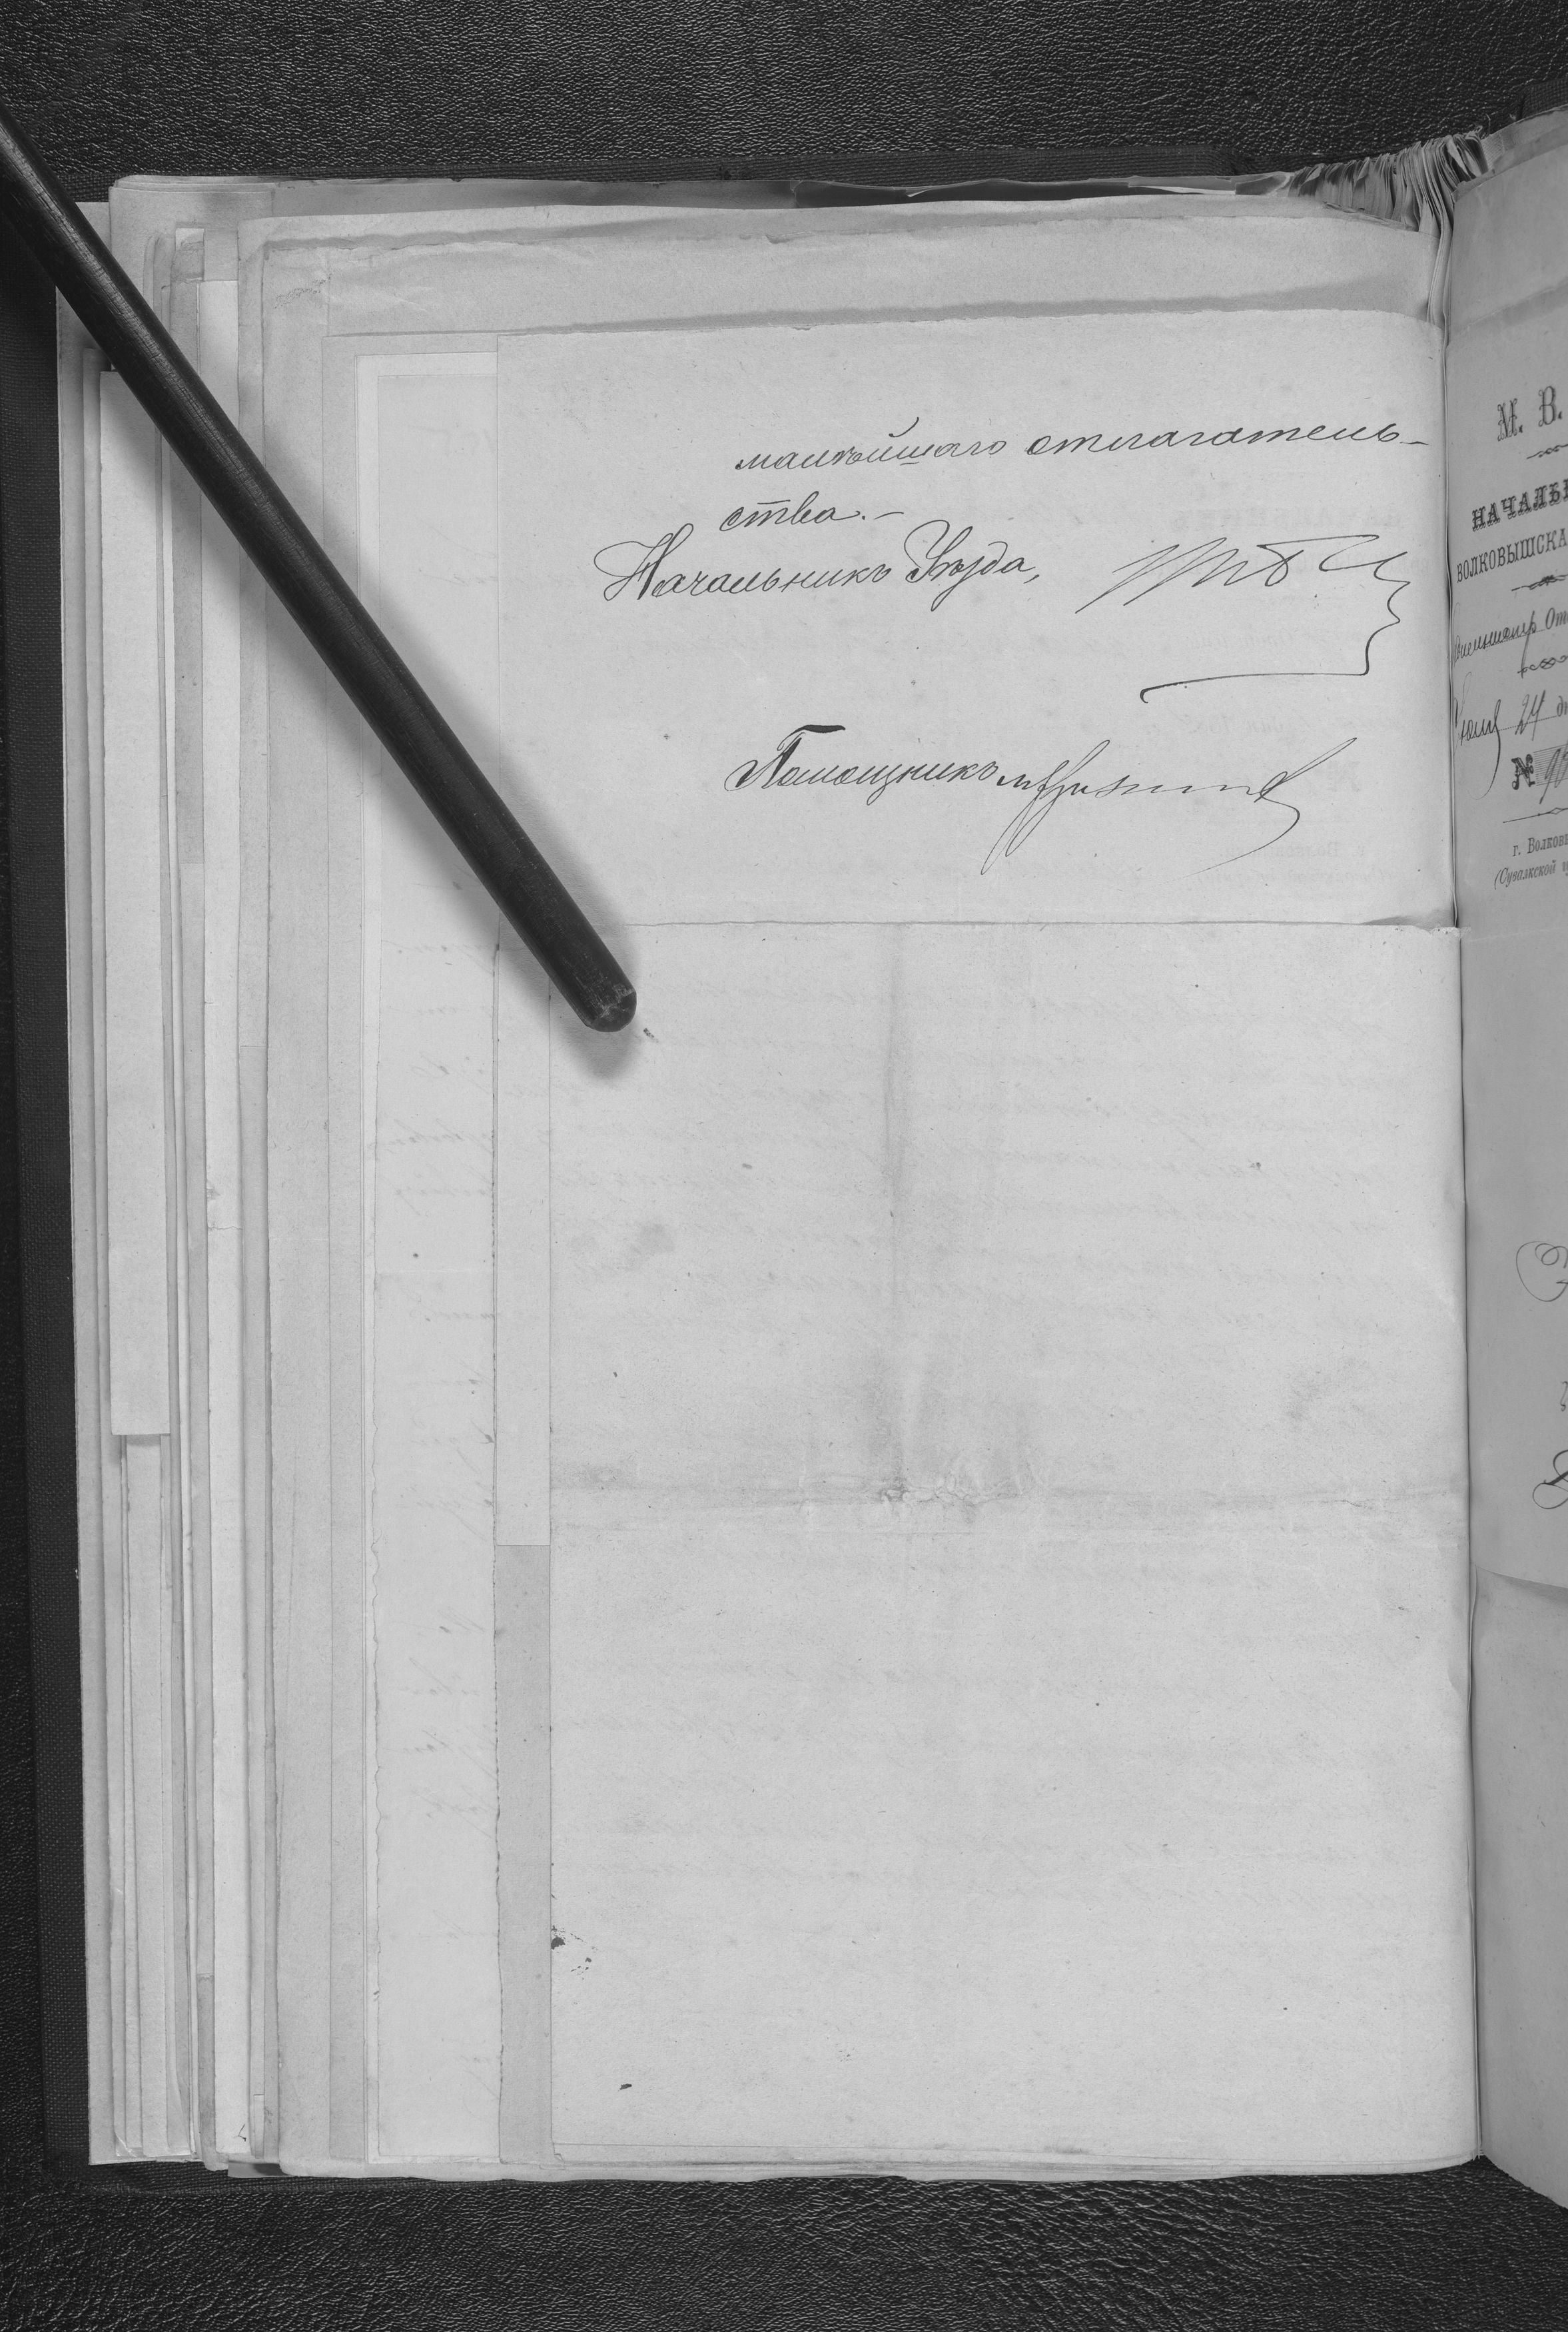 малѣйшаго отлагатель-
ства.-
Начальникъ Уѣзда,
Помощникъ
М. В.
НАЧАЛЬН
ВОЛКОВЫШСКА
Іюля 24 дн
№
г. Волковы
(Сувалкской гу